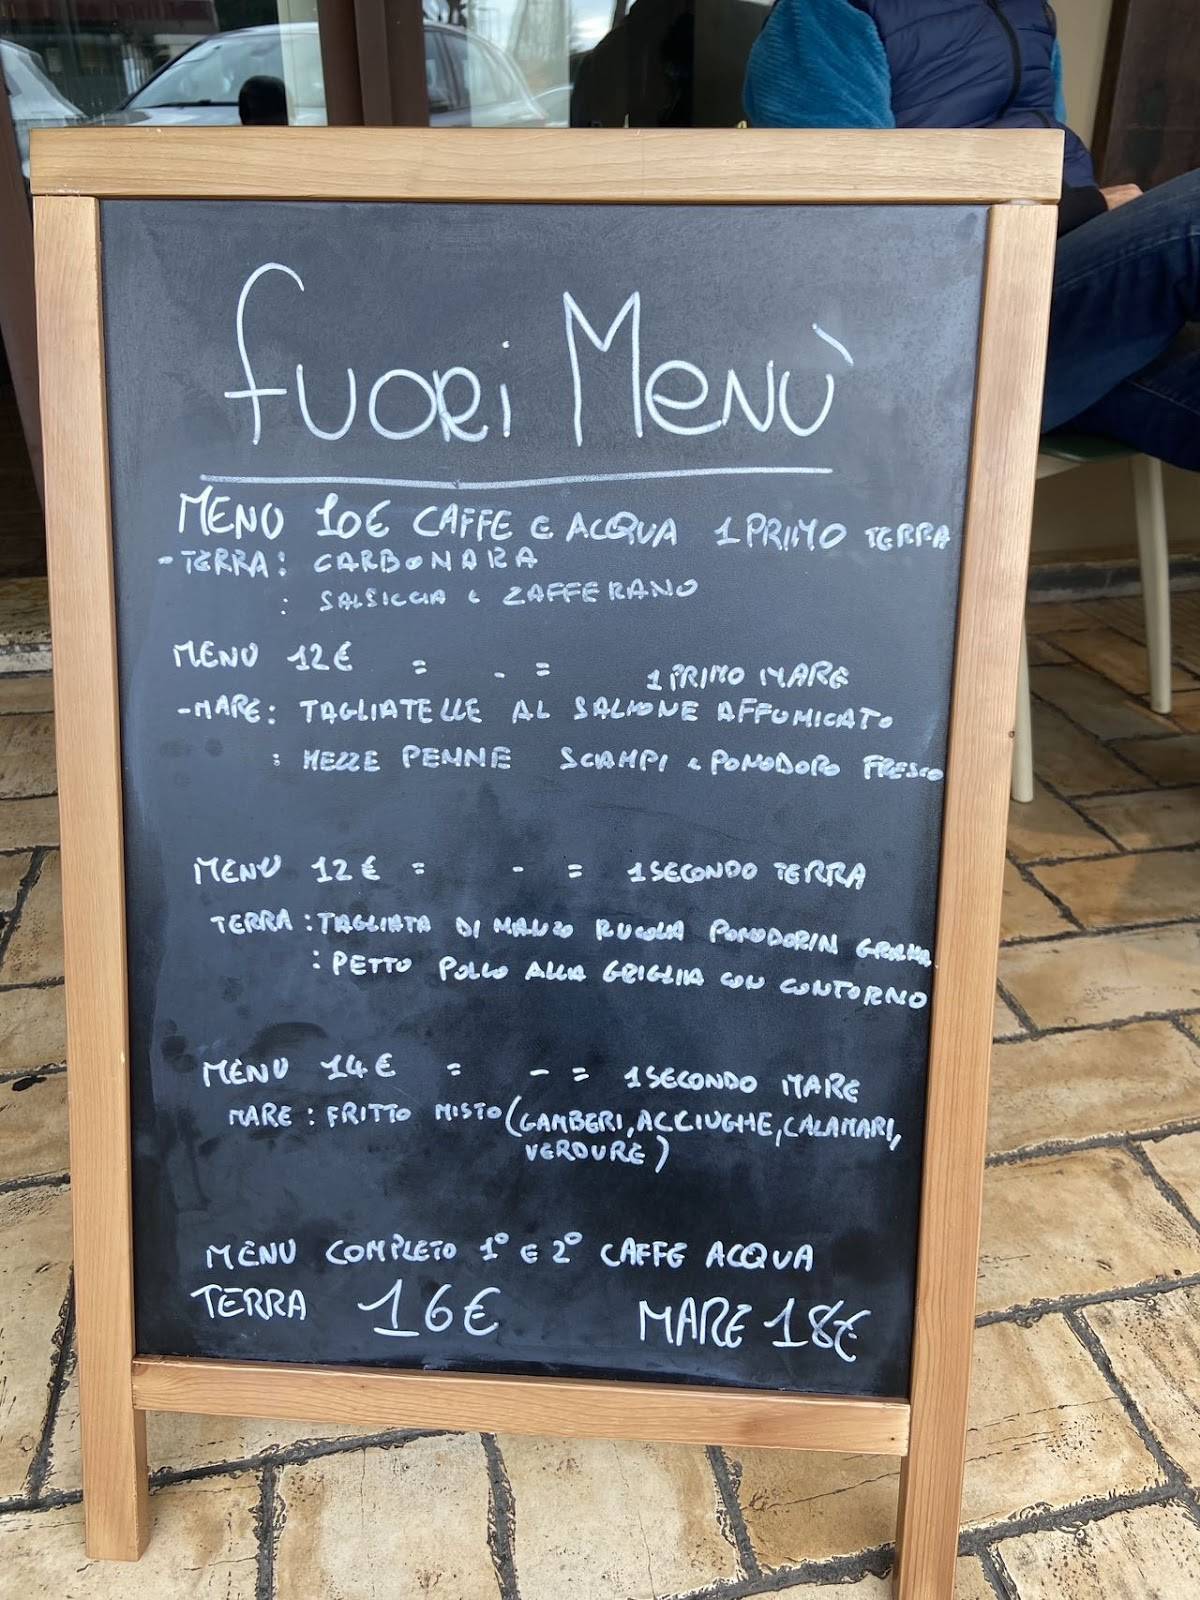 fuori Menù
MENU 10€ CAFFE E ACQUA 1 PRIMO TERRA
- TERRA: CARBONARA
: SALSICCIA e ZAFFERANO
MENU 12€ = - = 1 PRIMO MARE
- MARE: TAGLIATELLE AL SALMONE AFFUMICATO
: MEZZE PENNE SCAMPI e POMODORO FRESCO
MENU 12€ = - = 1 SECONDO TERRA
TERRA: TAGLIATA DI MANZO RUCOLA POMODORIN GRANA
: PETTO POLLO ALLA GRIGLIA CON CONTORNO
MENU 14€ = - = 1 SECONDO MARE
MARE: FRITTO MISTO (GAMBERI, ACCIUGHE, CALAMARI,
VERDURE)
MENU COMPLETO 1° E 2° CAFFE ACQUA
TERRA 16€ MARE 18€